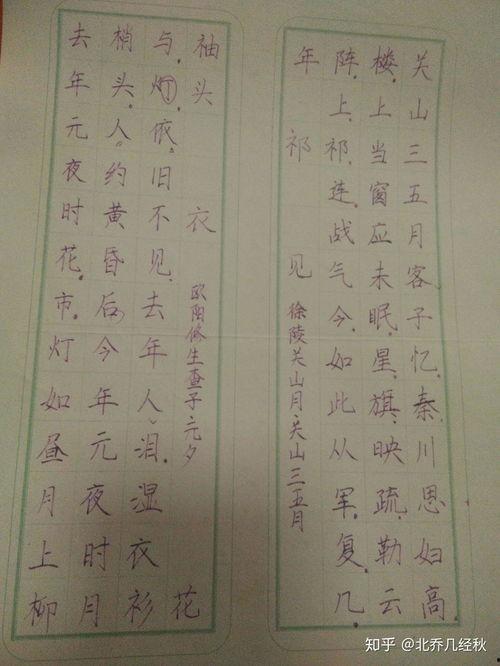 关山三五月客子忆秦川思妇高
楼上当窗应未眠星旗映疏勒云
阵上祁连战气今如此从军复几
年祁见
徐陵关山月·关山三五月
去年元夜时花市灯如昼月上柳
梢头人约黄昏后今年元夜时月
与灯依旧不见去年人泪湿衣衫
袖头衣
欧阳修生查子·元夕
花
知乎 @北乔几经秋